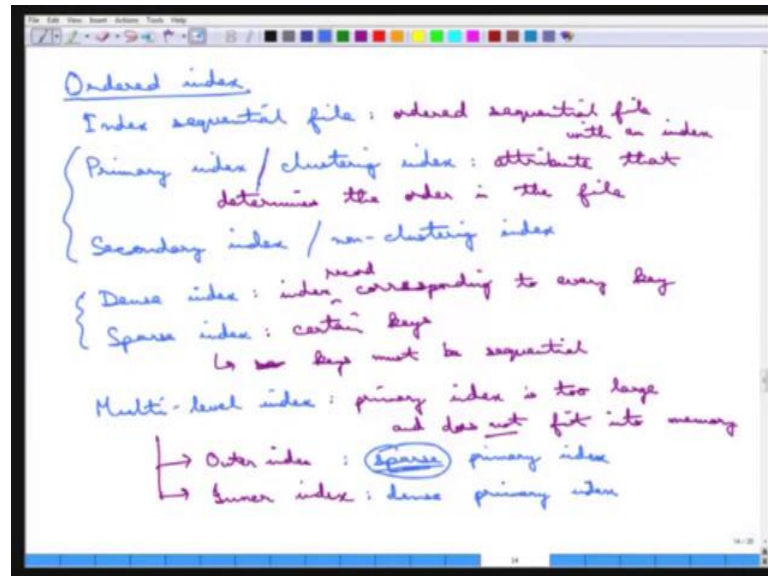 File Edit View Insert Actions Tools Help
Ordered index
Index sequential file : ordered sequential file
with an index
Primary index / clustering index : attribute that
determines the order in the file
Secondary index / non-clustering index
Dense index : index record corresponding to every key
Sparse index : certain keys
↳ keys must be sequential
Multi-level index : primary index is too large
and does not fit into memory
→ Outer index : sparse primary index
→ Inner index : dense primary index
14 / 20
14